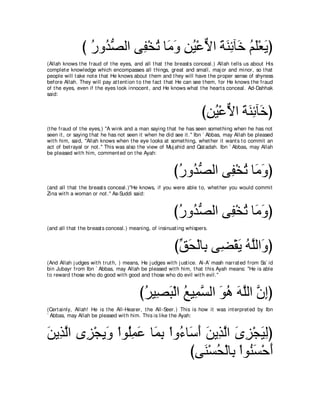 ( يَعْلَمُ خَآئِنَةَ ٱلاٌّعْيُنِ وَمَا تُخْفِى ٱلصُّدُورُ )
(Allah knows the fraud of the eyes, and all that the breasts conceal.) Allah tells us about His
complete knowledge which encompasses all things, great and small, major and minor, so that
people will take note that He knows about them and they will have the proper sense of shyness
before Allah. They will pay attention to the fact that He can see them, for He knows the fraud
of the eyes, even if the eyes look innocent, and He knows what the hearts conceal. Ad-Dahhak
said:
(خَآئِنَةَ ٱلاٌّعْيُنِ)
(the fraud of the eyes,) "A wink and a man saying that he has seen something when he has not
seen it, or saying that he has not seen it when he did see it." Ibn `Abbas, may Allah be pleased
with him, said, "Allah knows when the eye looks at something, whether it wants to commit an
act of betrayal or not." This was also the view of Mujahid and Qatadah. Ibn `Abbas, may Allah
be pleased with him, commented on the Ayah:
(وَمَا تُخْفِى ٱلصُّدُورُ)
(and all that the breasts conceal.)"He knows, if you were able to, whether you would commit
Zina with a woman or not." As-Suddi said:
(وَمَا تُخْفِى ٱلصُّدُورُ)
(and all that the breasts conceal.) meaning, of insinuating whispers.
(وَٱللَّهُ يَقْضِى بِٱلْحَقِّ)
(And Allah judges with truth, ) means, He judges with justice. Al-A`mash narrated from Sa`id
bin Jubayr from Ibn `Abbas, may Allah be pleased with him, that this Ayah means: "He is able
to reward those who do good with good and those who do evil with evil."
(إِنَّ ٱللَّهَ هُوَ ٱلسَّمِيعُ ٱلْبَصِيرُ)
(Certainly, Allah! He is the All-Hearer, the All-Seer.) This is how it was interpreted by Ibn
`Abbas, may Allah be pleased with him. This is like the Ayah:
(لِيَجْزِىَ ٱلَّذِينَ أَسَاءُواْ بِمَا عَمِلُواْ وَيِجْزِى ٱلَّذِينَ
أَحْسَنُواْ بِٱلْحُسْنَى)